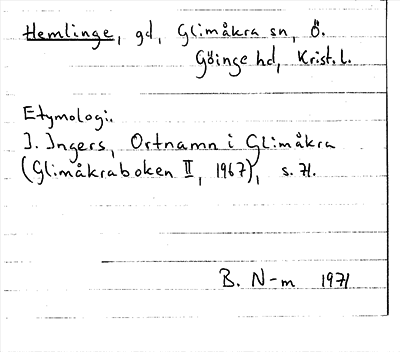 Hemlinge, gd, Glimåkra sn, Ö.
Göinge hd, Krist. l.
Etymologi:
I. Ingers, Ortnamn i Glimåkra
(Glimåkraboken II, 1967), s. 71.
B. N-m 1971